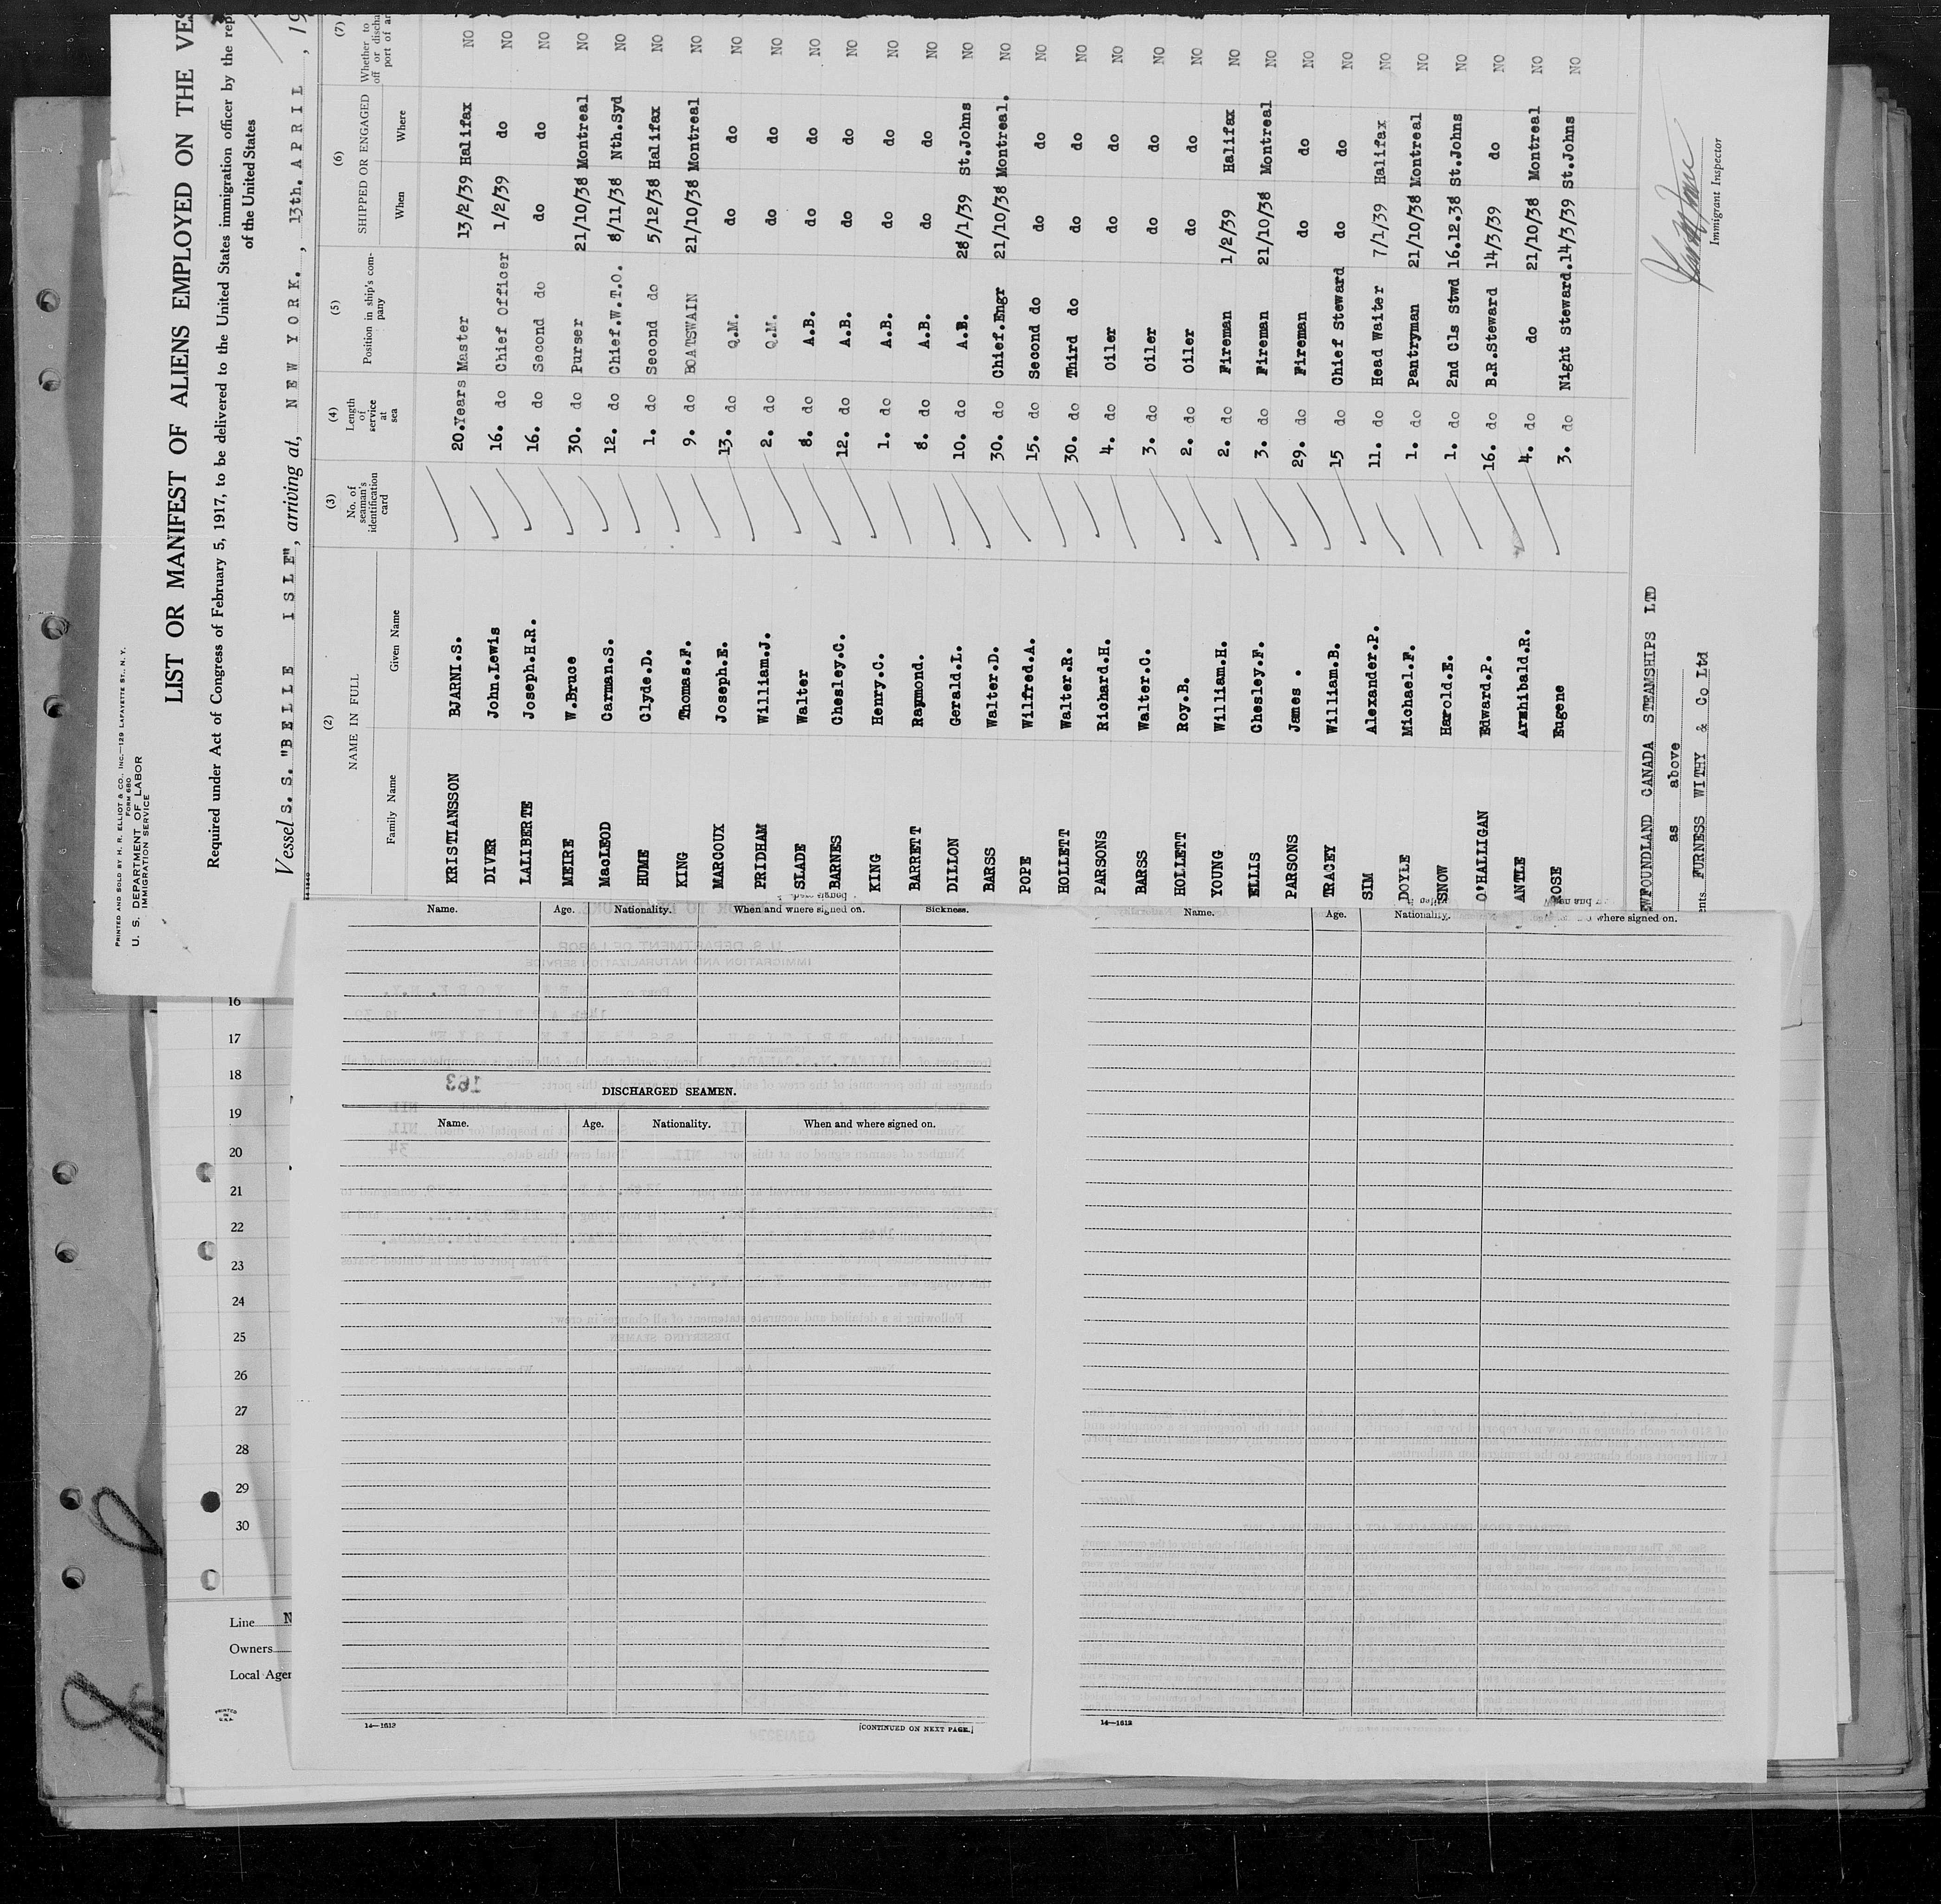 PRINTED AND SOLD BY H. R. ELLIOT & CO., INC.—129 LAFAYETTE ST., N. Y.
FORM 680
U. S. DEPARTMENT OF LABOR
IMMIGRATION SERVICE
LIST OR MANIFEST OF ALIENS EMPLOYED ON THE VES
Required under Act of Congress of February 5, 1917, to be delivered to the United States immigration officer by the rep
of the United States
Vessel S. S. "BELLE ISLE", arriving at, NEW YORK. , 13th. APRIL , 19
(2) (3) (4) (5) (6) (7)
NAME IN FULL No. of seaman's identification card Length of service at sea Position in ship's company SHIPPED OR ENGAGED Whether to
off or discha
port of ar
Family Name Given Name When Where
KRISTIANSSON BJARNI.S. 20.Years Master 13/2/39 Halifax NO
DIVER John.Lewis 16. do Chief Officer 1/2/39 do NO
LALIBERTE Joseph.H.R. 16. do Second do do do NO
MEIRE W.Bruce 30. do Purser 21/10/38 Montreal NO
MacLEOD Carman.S. 12. do Chief.W.T.O. 8/11/38 Nth.Syd NO
HUME Clyde.D. 1. do Second do 5/12/38 Halifax NO
KING Thomas.F. 9. do BOATSWAIN 21/10/38 Montreal NO
MARCOUX Joseph.E. 13. do Q.M. do do NO
PRIDHAM William.J. 2. do Q.M. do do NO
SLADE Walter 8. do A.B. do do NO
BARNES Chesley.C. 12. do A.B. do do NO
KING Henry.C. 1. do A.B. do do NO
BARRETT Raymond. 8. do A.B. do do NO
DILLON Gerald.L. 10. do A.B. 28/1/39 St.Johns NO
BARSS Walter.D. 30. do Chief.Engr 21/10/38 Montreal. NO
POPE Wilfred.A. 15. do Second do do do NO
HOLLETT Walter.R. 30. do Third do do do NO
PARSONS Richard.H. 4. do Oiler do do NO
BARSS Walter.C. 3. do Oiler do do NO
HOLLETT Roy.B. 2. do Oiler do do NO
YOUNG William.H. 2. do Fireman 1/2/39 Halifax NO
ELLIS Chesley.F. 3. do Fireman 21/10/38 Montreal NO
PARSONS James . 29. do Fireman do do NO
TRACEY William.B. 15 do Chief Steward do do NO
SIM Alexander.P. 11. do Head Waiter 7/1/39 Halifax NO
DOYLE Michael.F. 1. do Pantryman 21/10/38 Montreal NO
SNOW Harold.E. 1. do 2nd Cls Stwd 16.12.38 St.Johns NO
O'HALLIGAN Edward.P. 16. do B.R.Steward 14/3/39 do NO
ANTLE Archibald.R. 4. do do 21/10/38 Montreal NO
ROSE Eugene 3. do Night Steward. 14/3/39 St.Johns NO
EWFOUNDLAND CANADA STEAMSHIPS LTD
as above
ents FURNESS WITHY & Co Ltd
Immigrant Inspector
Name. Age. Nationality. When and where signed on. Sickness.
DISCHARGED SEAMEN.
Name. Age. Nationality. When and where signed on.
14—1613 [CONTINUED ON NEXT PAGE.]
Name. Age. Nationality. where signed on.
14—1613
16
17
18
19
20
21
22
23
24
25
26
27
28
29
30
Line N
Owners
Local Agen
PRINTED
IN
U.S.A.